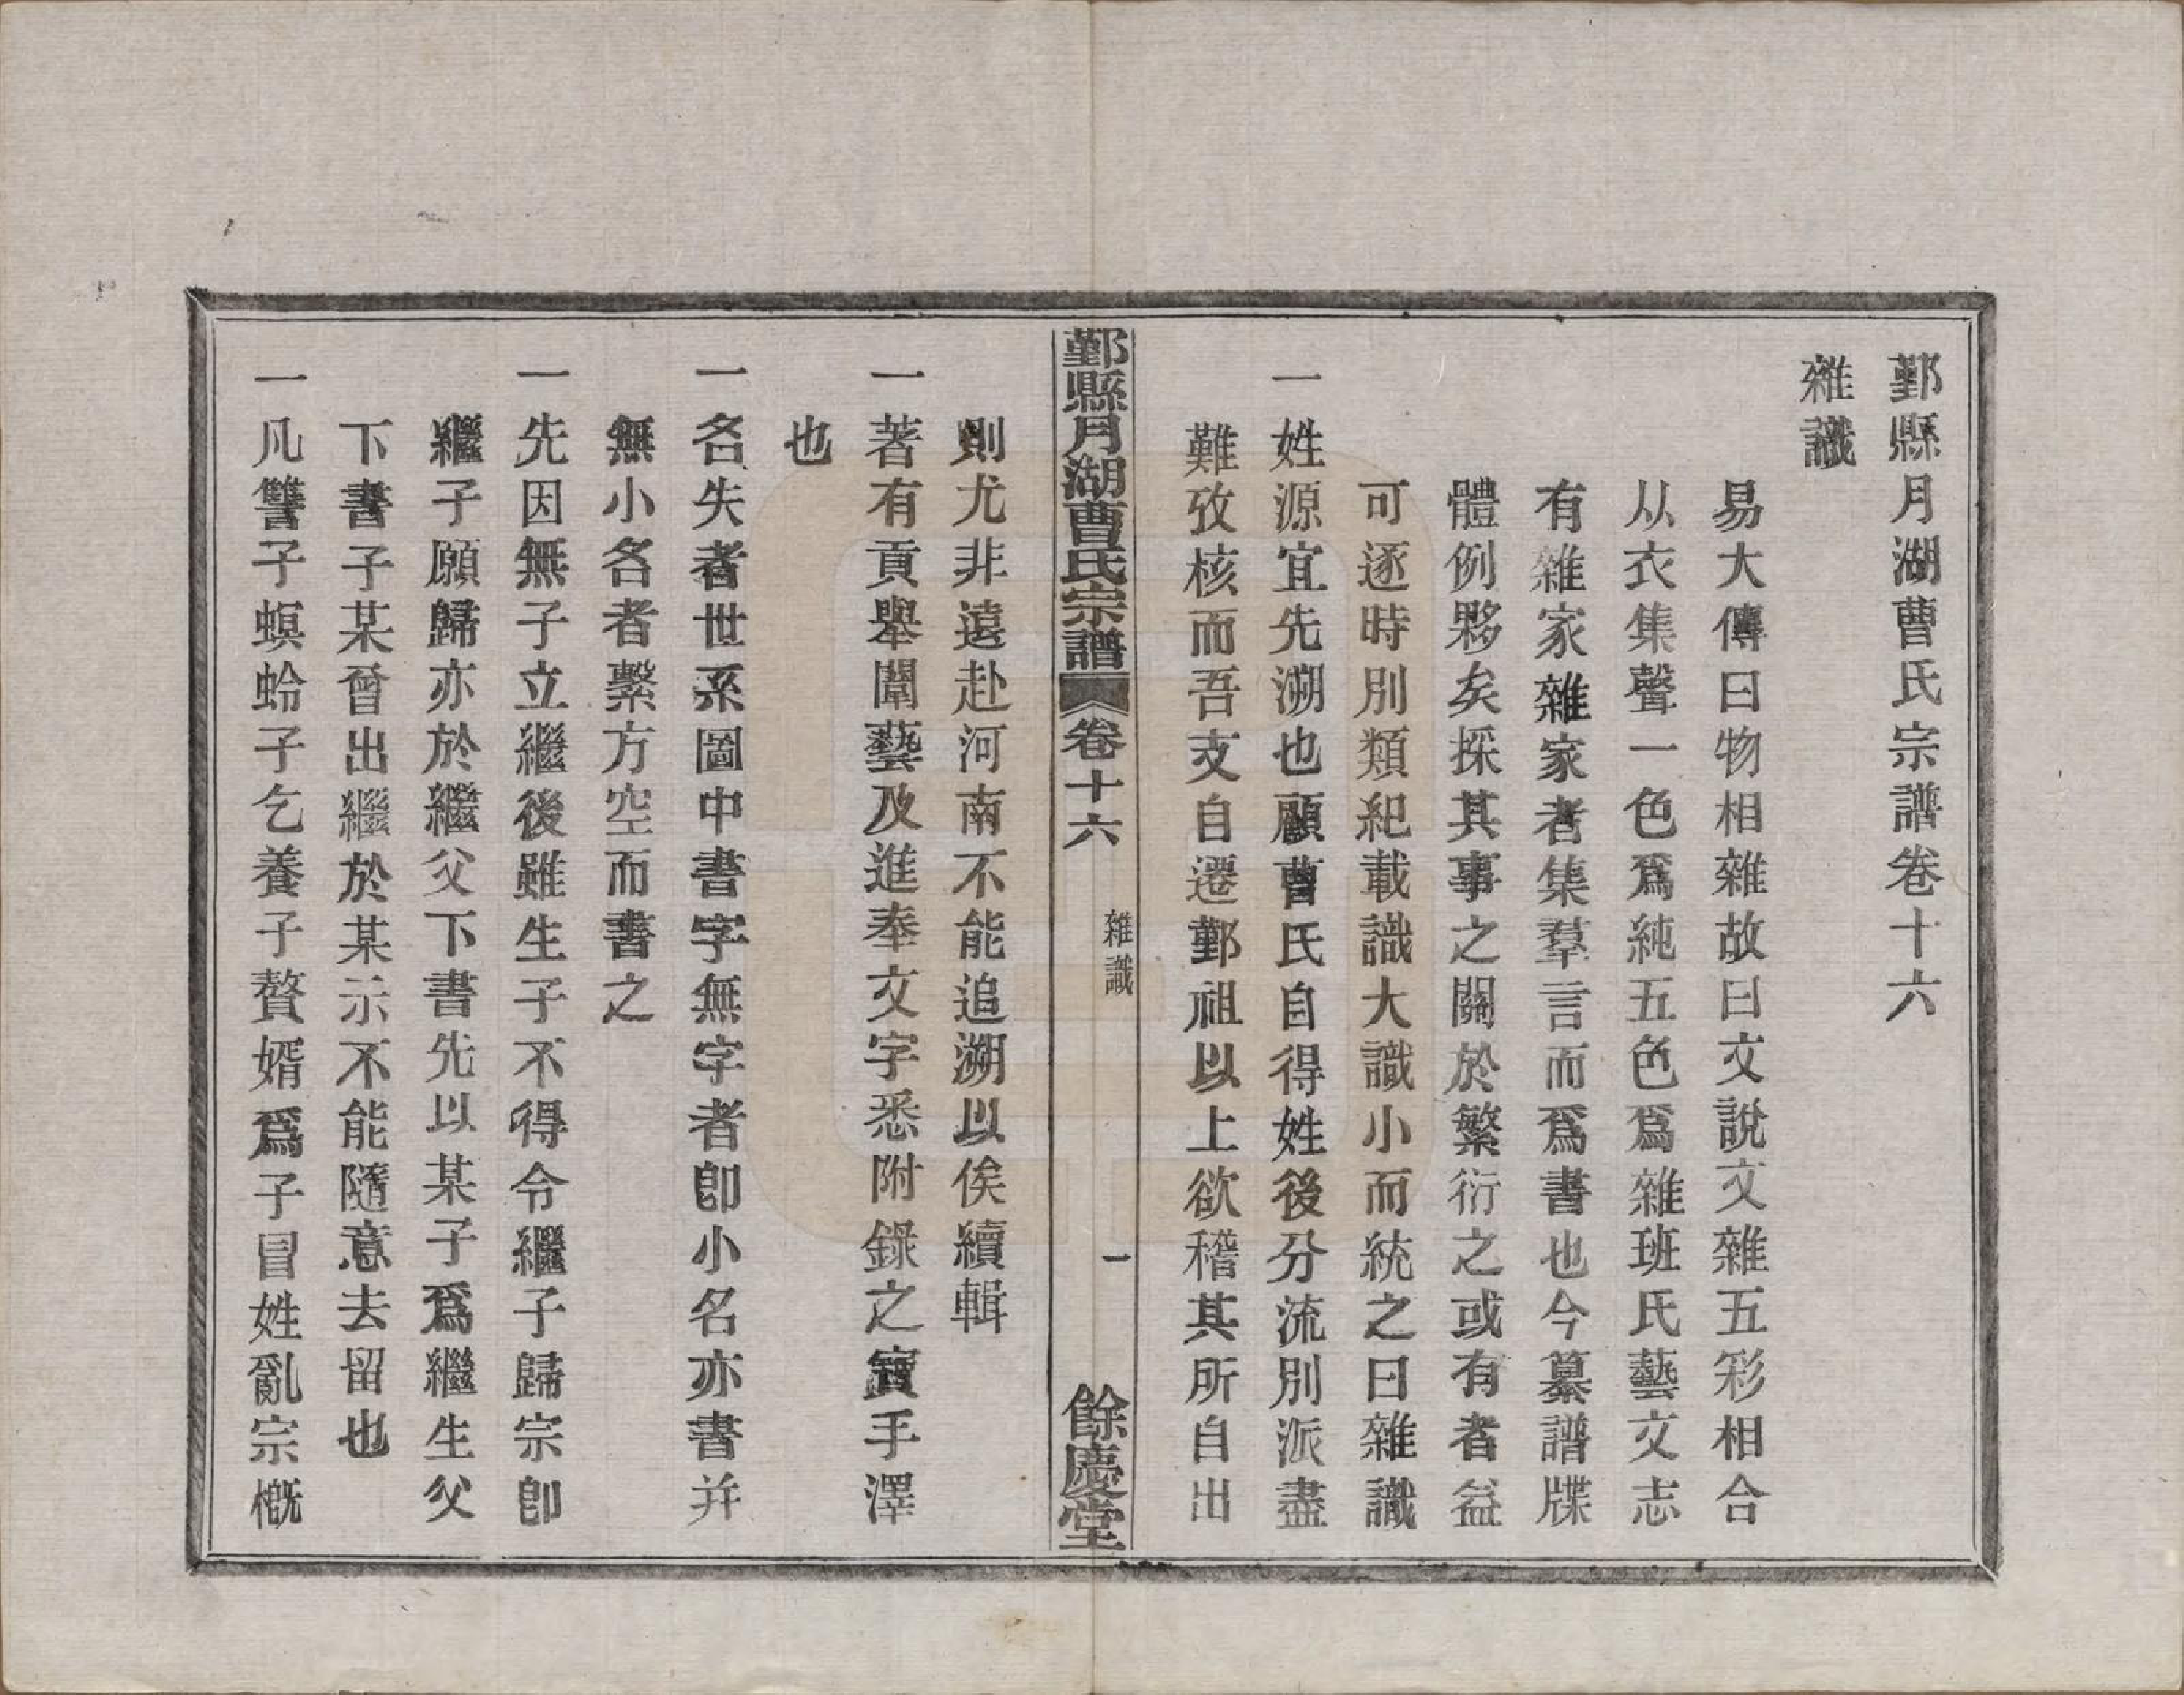 鄞縣月湖曹氏宗譜卷十六
雜識
易大傳曰物相雜故曰文說文雜五彩相合
从衣集聲一色爲純五色爲雜班氏藝文志
有雜家雜家者集羣言而爲書也今纂譜牒
體例夥矣採其事之關於繁衍之或有者益
可逐時別類紀載識大識小而統之曰雜識
一姓源宜先溯也顧曹氏自得姓後分流別派盡
難攷核而吾支自遷鄞祖以上欲稽其所自出
鄞縣月湖曹氏宗譜 卷十六 雜識 一 餘慶堂
則尤非遠赴河南不能追溯以俟續輯
一著有貢舉闈藝及進奉文字悉附錄之寶手澤
也
一名失者世系圖中書字無字者卽小名亦書并
無小名者繫方空而書之
一先因無子立繼後雖生子不得令繼子歸宗卽
繼子願歸亦於繼父下書先以某子爲繼生父
下書子某曾出繼於某示不能隨意去留也
一凡讐子螟蛉子乞養子贅婿爲子冒姓亂宗概